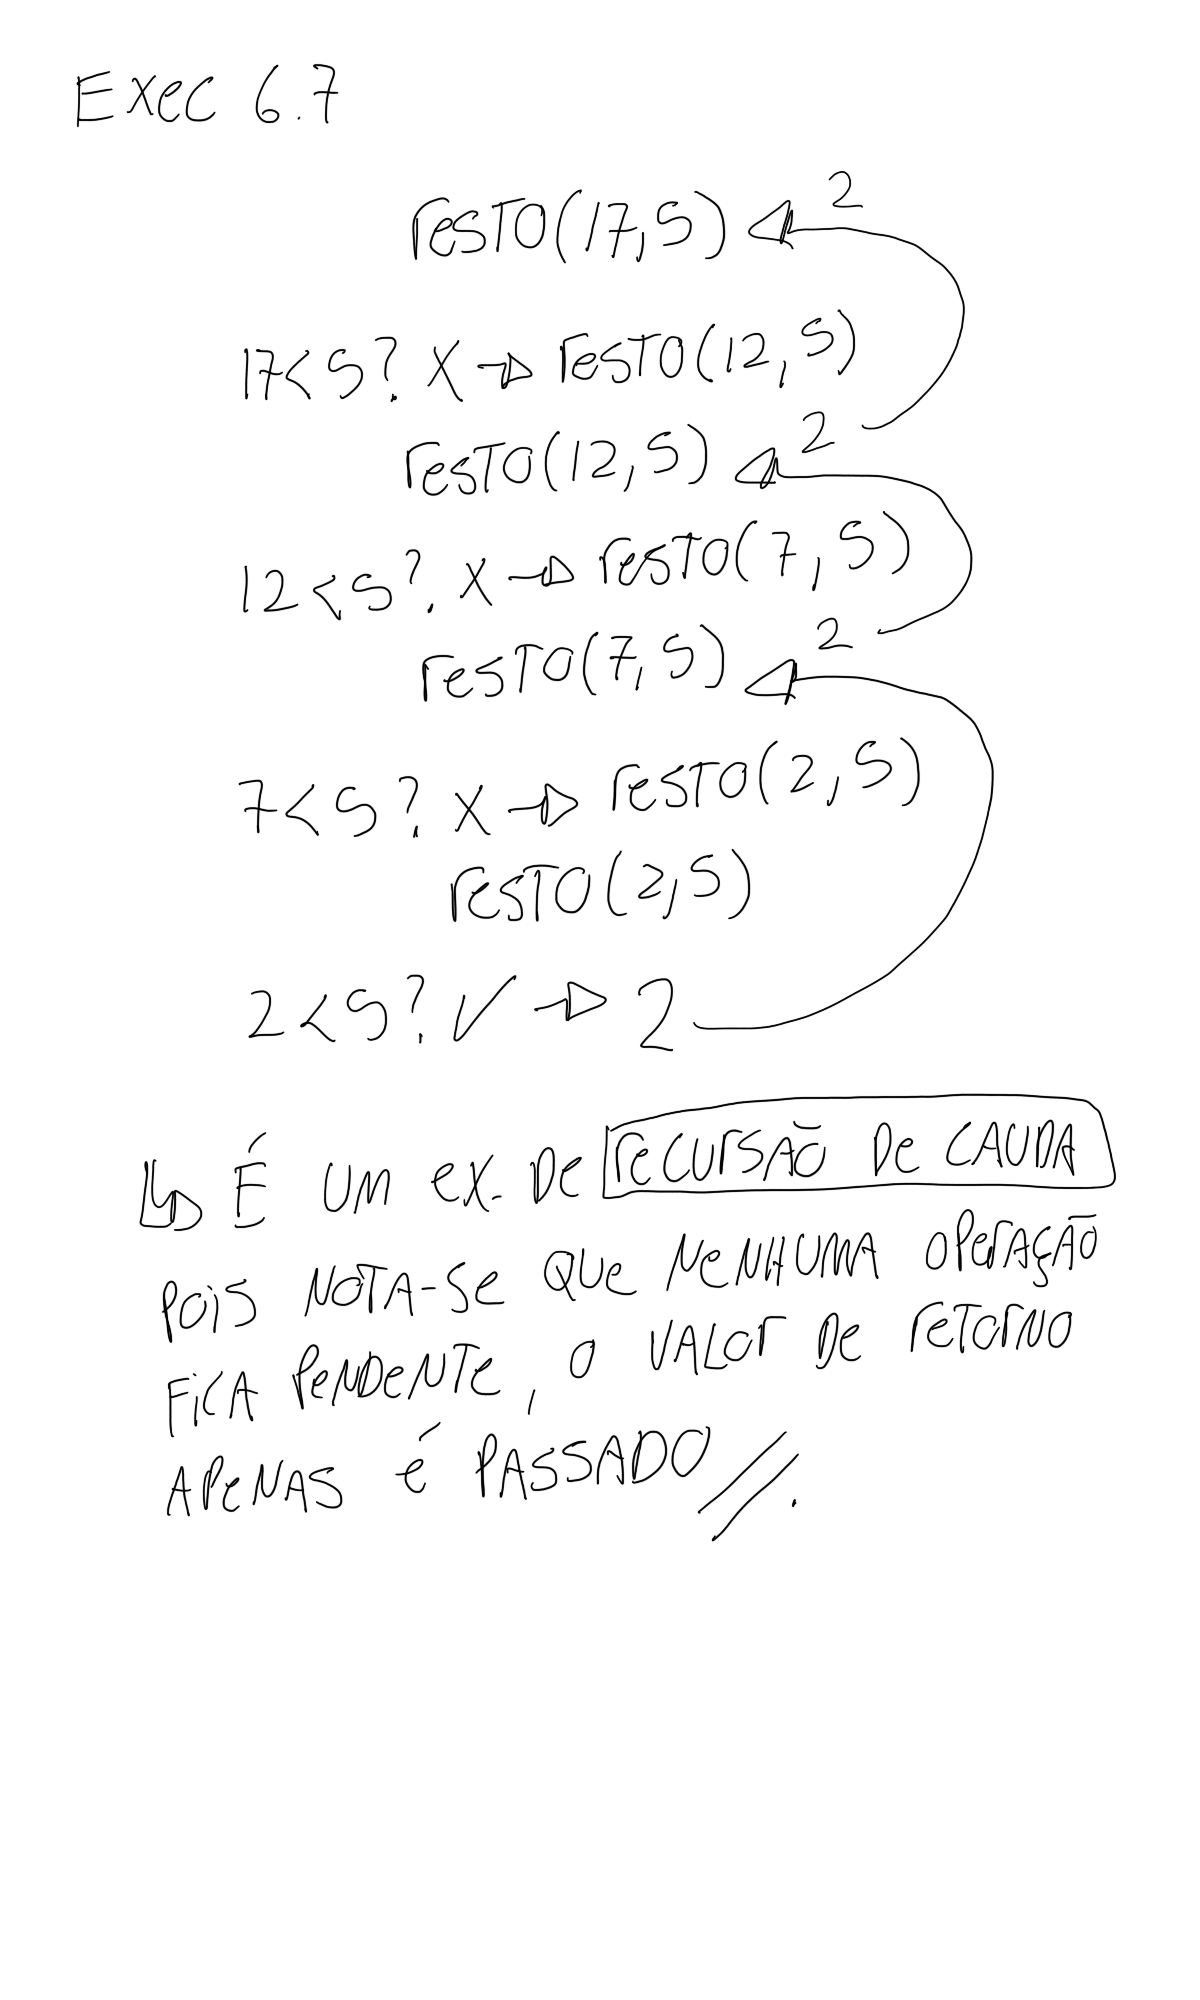 Exec 6.7
resto(17,5) 2
17<5? X → resto(12,5)
resto(12,5) 2
12<5? X → resto(7,5)
resto(7,5) 2
7<5? X → resto(2,5)
resto(2,5)
2<5? ✓ → 2
↳ É UM EX. DE RECURSÃO DE CAUDA
POIS NOTA-SE QUE NENHUMA OPERAÇÃO
FICA PENDENTE, O VALOR DE RETORNO
APENAS É PASSADO //.